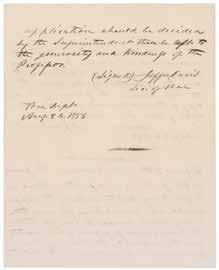 application should be decided
by the Superintendent than be left to
the generosity and kindness of the
Professor.
(Signed) Jeffn Davis
Sec. of War
War Dept.
Aug. 1856